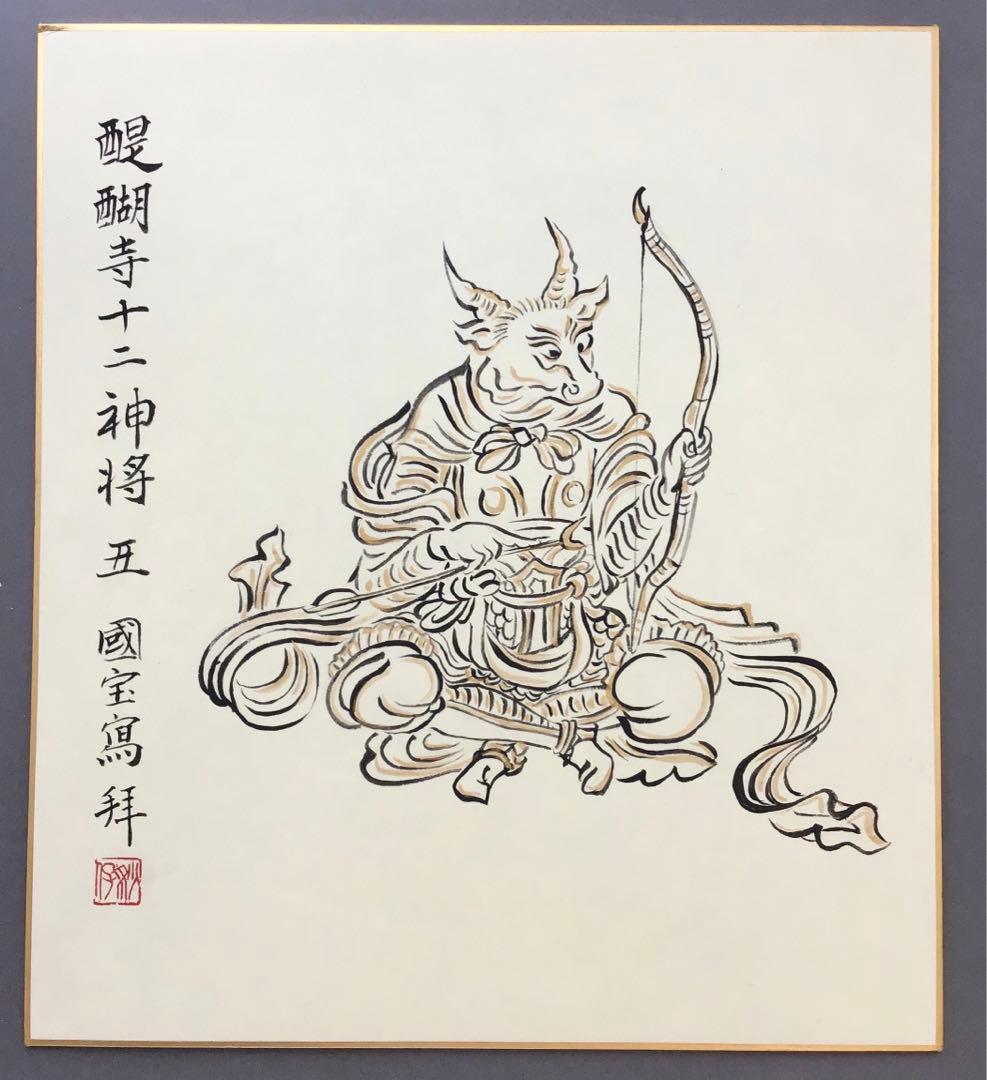 醍醐寺十二神将 丑 國宝寫 拜